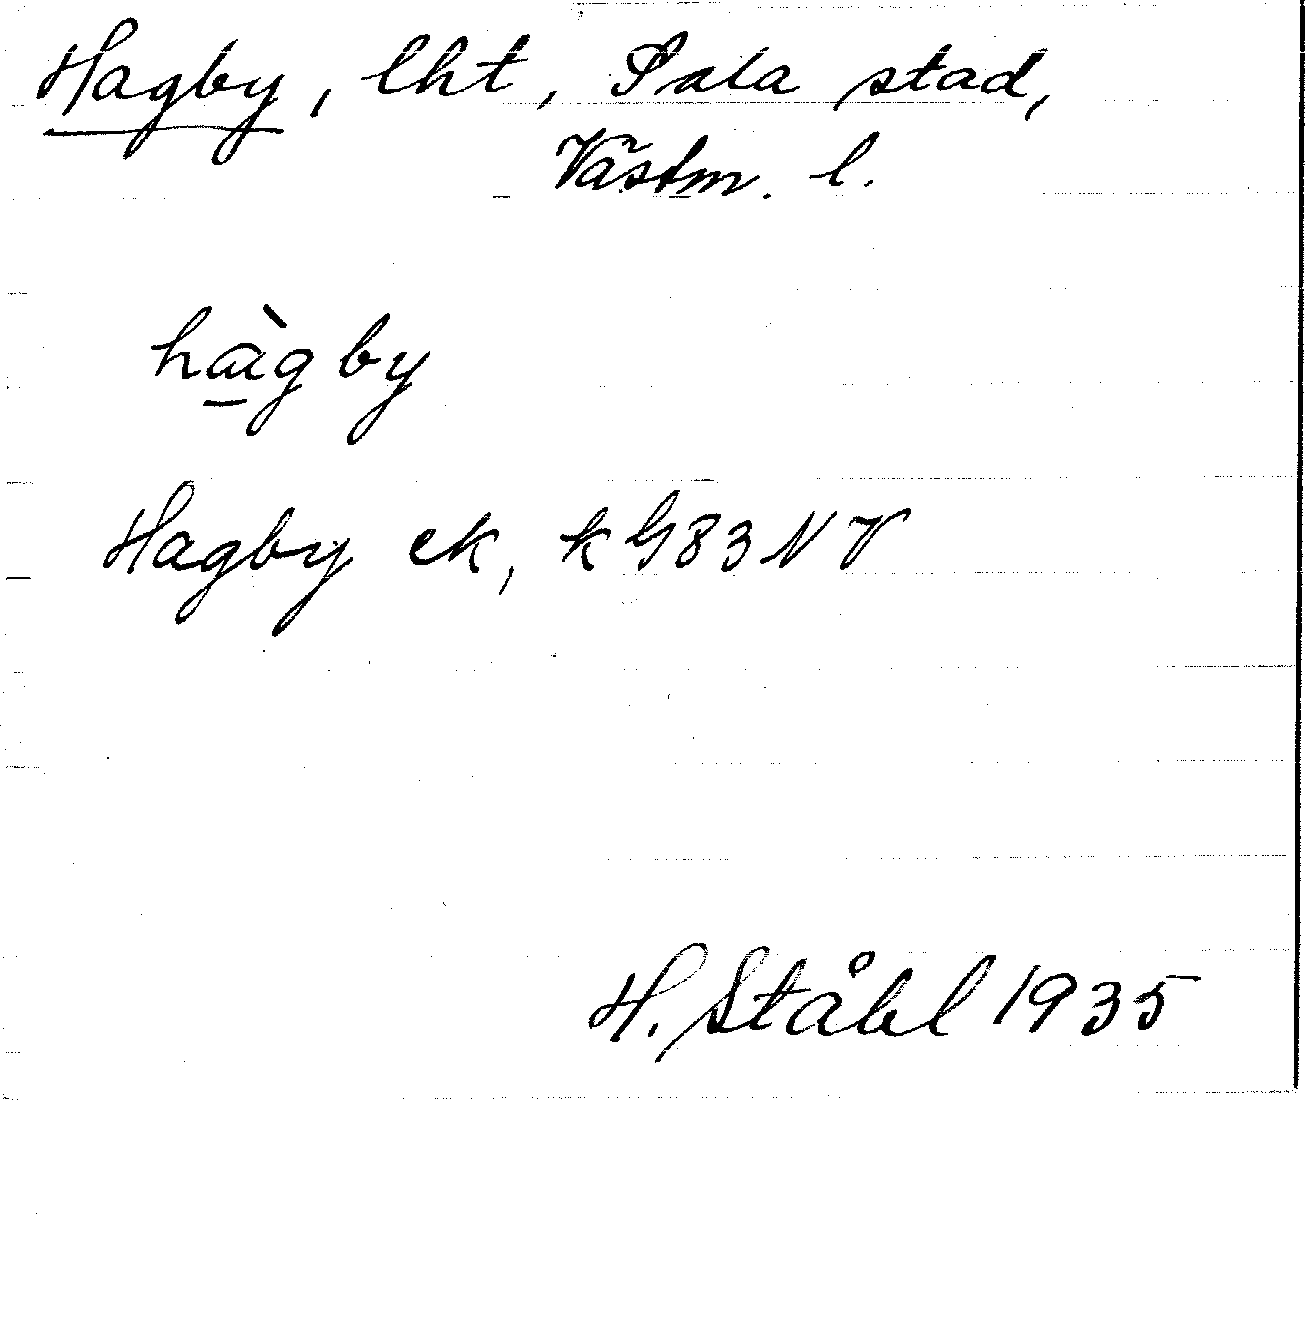 Hagby, lht, Sala stad,
Västm. l.
hàgby
Hagby ek, k G83NV
H. Ståhl 1935